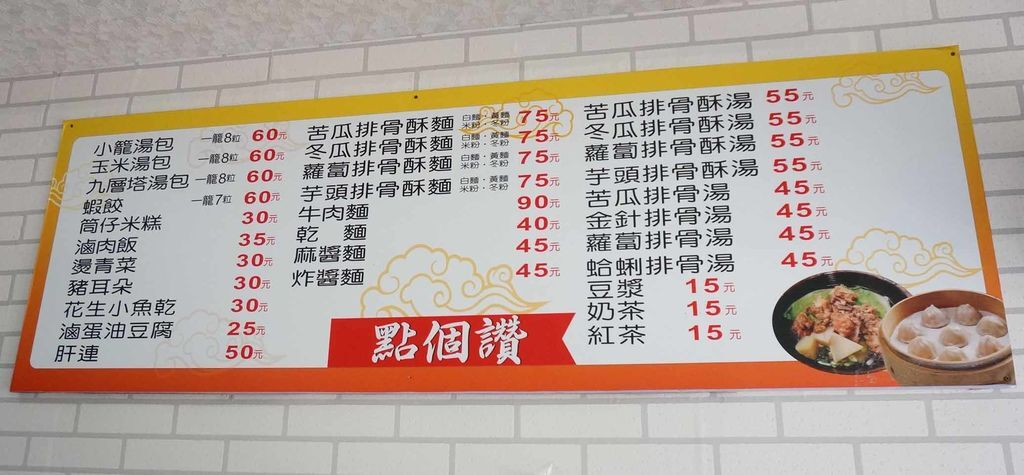 小籠湯包 一籠8粒 60元
玉米湯包 一籠8粒 60元
九層塔湯包 一籠8粒 60元
蝦餃 一籠7粒 60元
筒仔米糕 30元
滷肉飯 35元
燙青菜 30元
豬耳朵 30元
花生小魚乾 30元
滷蛋油豆腐 25元
肝連 50元
苦瓜排骨酥麵 白麵・黃麵 米粉・冬粉 75元
冬瓜排骨酥麵 白麵・黃麵 米粉・冬粉 75元
蘿蔔排骨酥麵 白麵・黃麵 米粉・冬粉 75元
芋頭排骨酥麵 白麵・黃麵 米粉・冬粉 75元
牛肉麵 90元
乾 麵 40元
麻醬麵 45元
炸醬麵 45元
點個讚
苦瓜排骨酥湯 55元
冬瓜排骨酥湯 55元
蘿蔔排骨酥湯 55元
芋頭排骨酥湯 55元
苦瓜排骨湯 45元
金針排骨湯 45元
蘿蔔排骨湯 45元
蛤蜊排骨湯 45元
豆漿 15元
奶茶 15元
紅茶 15元